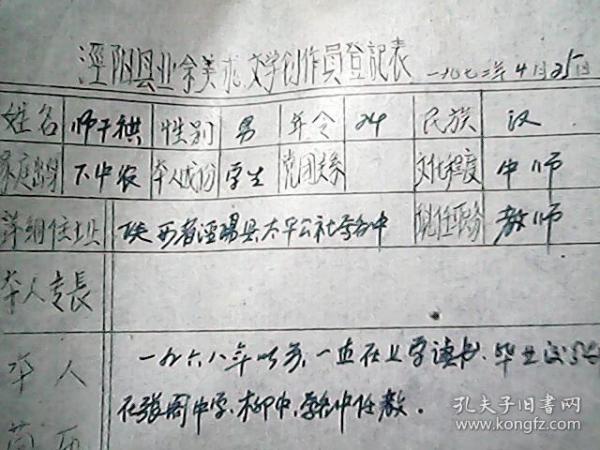 泾阳县业余美术文学创作员登记表 一九七二年4月25日
姓名 师 性别 男 年令 24 民族 汉
家庭出身 下中农 本人成份 学生 党团关系 文化程度 中师
详细住址 陕西省泾陽县太平公社 中 现任职务 教师
本人专長
本人 一九六八年以前,一直在上学读书.毕业后
在张阁中学.柳中. 中任教.
简历
孔夫子旧书网
www.kongfz.com